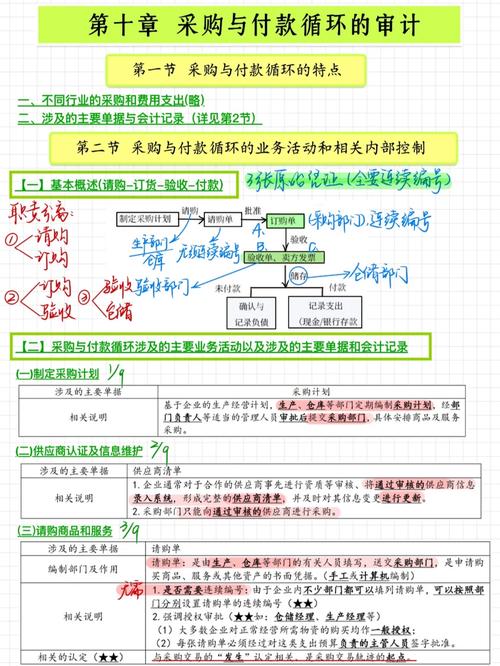 第十章 采购与付款循环的审计
第一节 采购与付款循环的特点
一、不同行业的采购和费用支出(略)
二、涉及的主要单据与会计记录（详见第2节）
第二节 采购与付款循环的业务活动和相关内部控制
【一】基本概述(请购–订货–验收–付款)
3张原始凭证(全要连续编号)
职责分离:
①请购
订购
②订购
验收
③验收
仓储
制定采购计划
请购
请购单
批准
订购单
A.
(采购部门).连续编号
生产部门
仓库
无须连续编号
验收
B.
C.
验收单、卖方发票
验收部门
储存
仓储部门
未付款
付款
确认与
记录负债
记录支出
(现金/银行存款)
【二】采购与付款循环涉及的主要业务活动以及涉及的主要单据和会计记录
(一)制定采购计划 1/9
涉及的主要单据 采购计划
相关说明 基于企业的生产经营计划，生产、仓库等部门定期编制采购计划，经部
门负责人等适当的管理人员审批后提交采购部门，具体安排商品及服务
采购。
(二)供应商认证及信息维护 2/9
涉及的主要单据 供应商清单
相关说明 1.企业通常对于合作的供应商事先进行资质等审核，将通过审核的供应商信息
录入系统，形成完整的供应商清单，并及时对其信息变更进行更新。
2.采购部门只能向通过审核的供应商进行采购。
(三)请购商品和服务 3/9
涉及的主要单据 请购单
编制部门及作用 请购单：是由生产、仓库等部门的有关人员填写，送交采购部门，是申请购
买商品、服务或其他资产的书面凭据。（手工或计算机编制）
无需
相关说明 1.是否需要连续编号：由于企业内不少部门都可以填列请购单，可以按照部
门分别设置请购单的连续编号（★★）
2.强调授权审批（★★）(如：仓储经理、生产经理等)
（1）大多数企业对正常经营所需物资的购买均作一般授权；
（2）每张请购单必须经过对这类支出预算负责的主管人员签字批准。
相关的认定（★） 与采购交易的“发生”认定相关，是采购交易轨迹的起点。